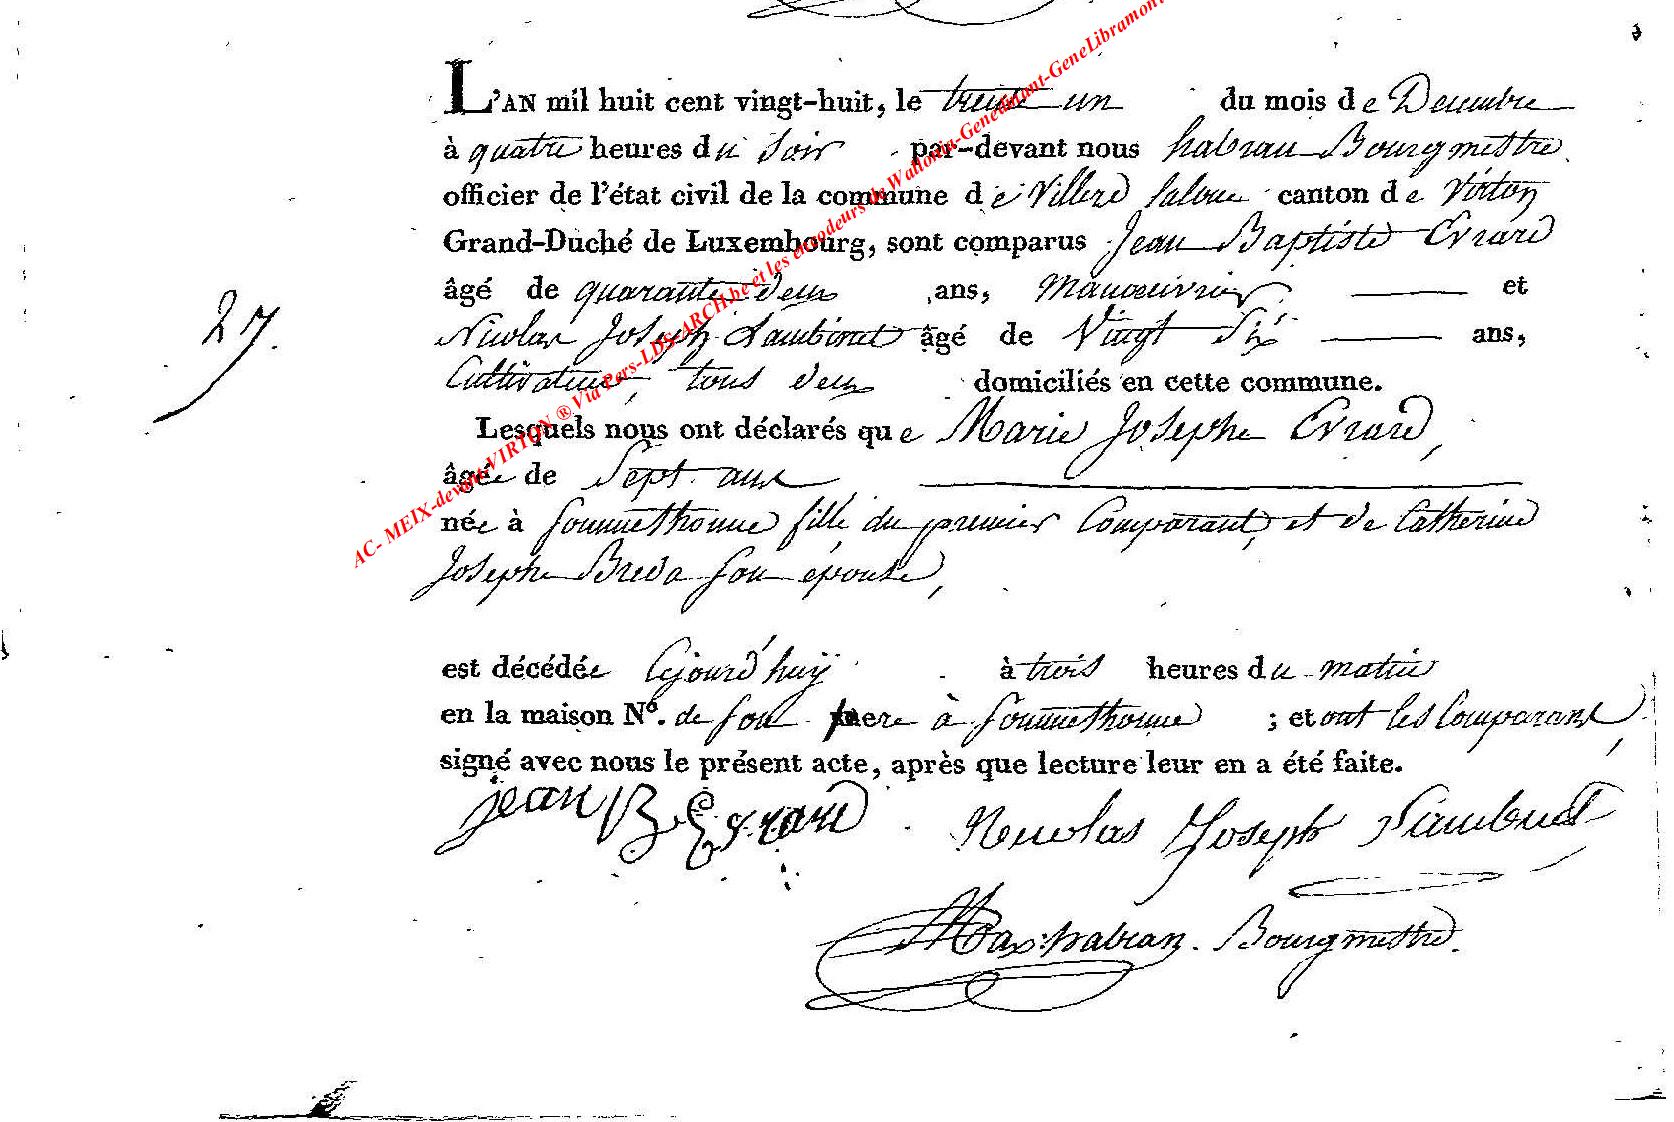 L'AN mil huit cent vingt-huit, le trente un du mois de Decembre
à quatre heures du Soir par-devant nous habran Bourgmestre
officier de l'état civil de la commune de Villers laloue canton de Virton
Grand-Duché de Luxembourg, sont comparus Jean Baptiste Evrard
âgé de quarante deux ans, Manoeuvrier et
27.
Nicolas Joseph Lambinet âgé de Vingt Six ans,
Cultivateur, tous deux domiciliés en cette commune.
Lesquels nous ont déclarés que Marie Josephe Evrard,
âgée de Sept ans
née à Sommethonne fille du premier Comparant, et de Catherine
Josephe Breda son épouse,
est décédée Cejourd'huÿ à trois heures du matin
en la maison N.º de son pere à Sommethonne ; et ont les Comparans,
signé avec nous le présent acte, après que lecture leur en a été faite.
jean B Evrard Nicolas Joseph Lambinet
Max: habran. Bourgmestre.
AC- MEIX-devant-VIRTON ® Via Pers-LDS-ARCH.be et les encodeurs de Wallonia-Genedinant-GeneLibramont